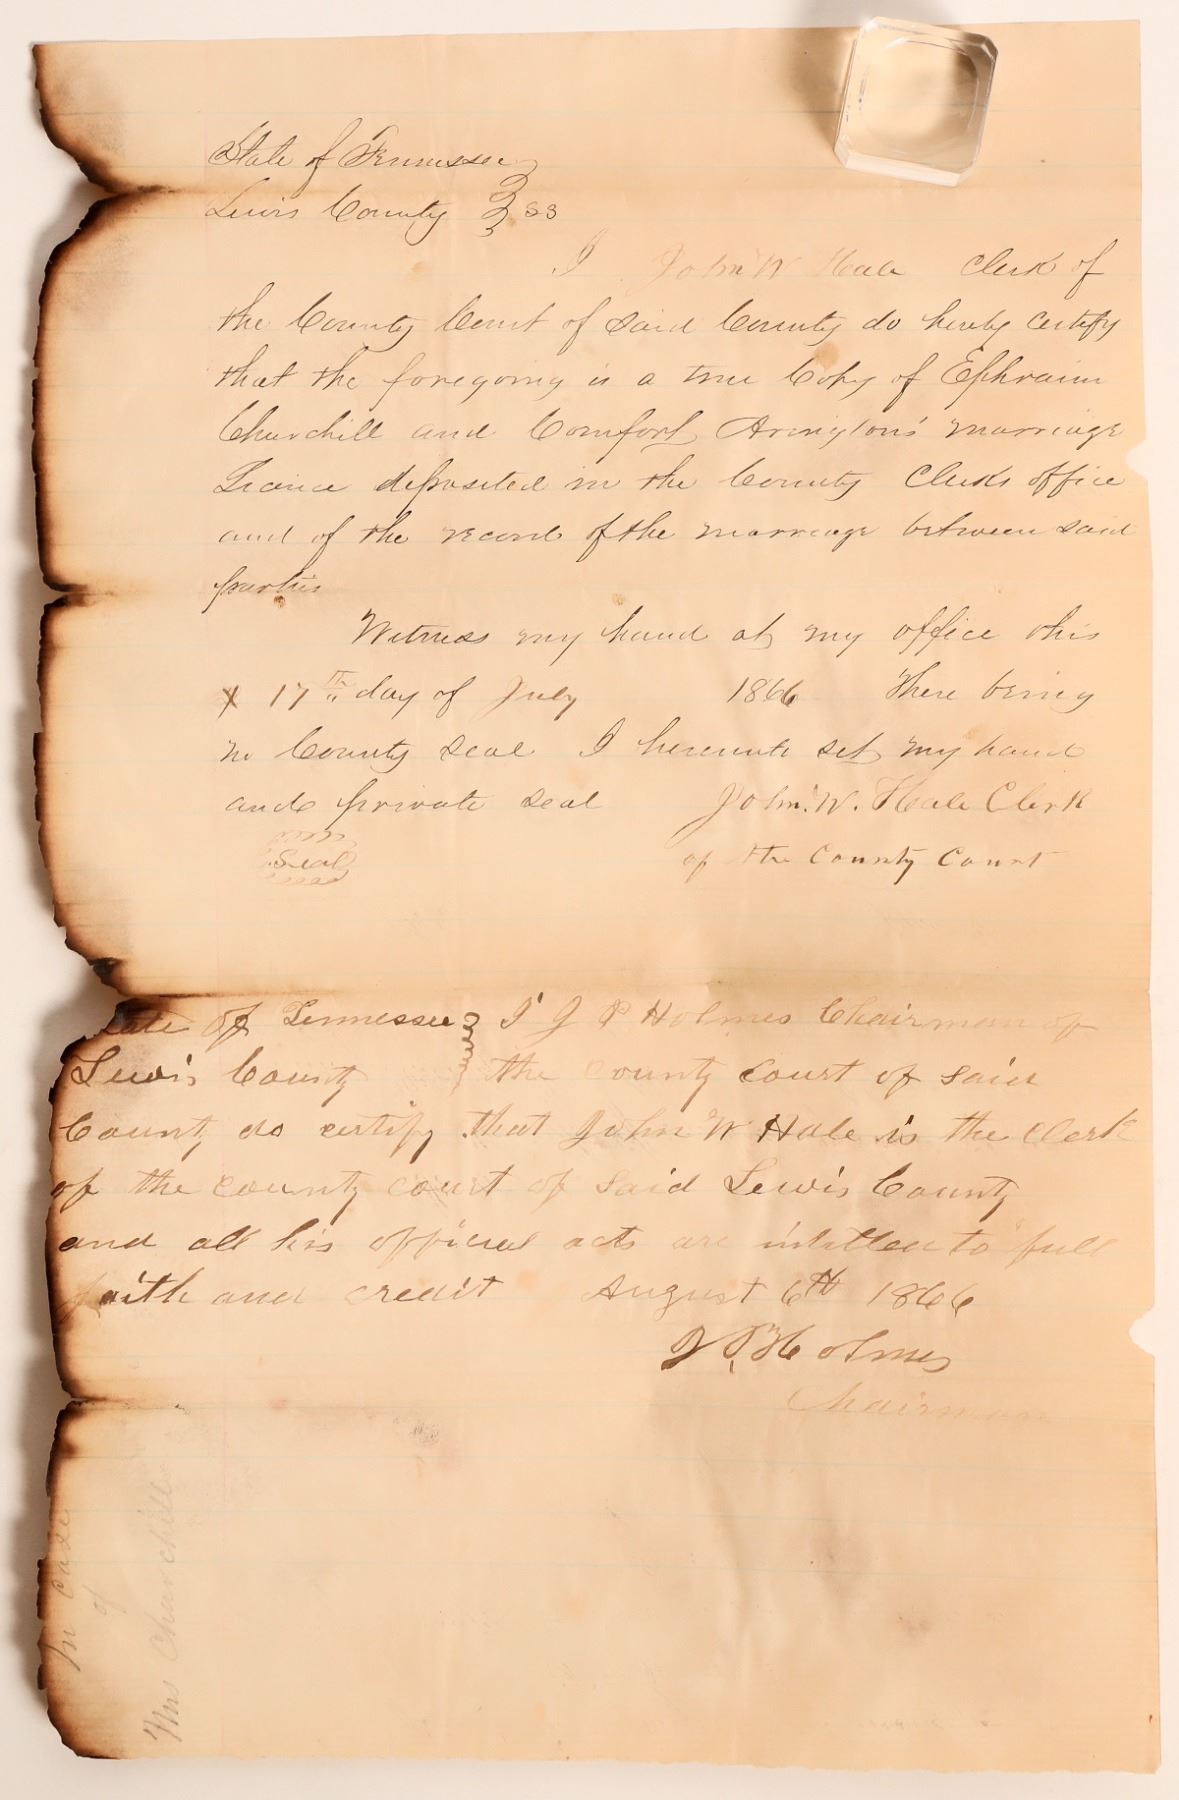 State of Tennessee
Lewis County } SS
I John W Hale Clerk of
the County Court of Said County do hereby certify
that the foregoing is a true Copy of Ephraim
Churchill and Comfort Arington's marriage
Licince deposited in the County Clerks office
and of the record of the marriage between said
parties
Witness my hand at my office this
17th day of July 1866 There being
no County Seal I hereunto set my hand
and private seal John. W. Hale Clerk
Seal of the County Court
tate of Tennessee } I J P Holmes Chairman of
Lewis County the county court of said
County do certify that John W Hale is the clerk
of the county court of said Lewis County
and all his official acts are intitled to full
faith and credit August 6th 1866
J P Holmes
Chairman
In case
of
Mrs Churchill